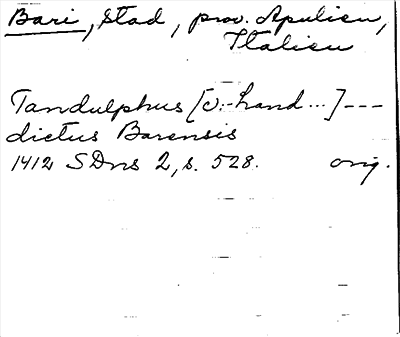 Bari, stad, prov. Apulien,
Italien
Tandulphus [v:-hand...] ---
dictus Barensis
1412 SDns 2, s. 528. orig.